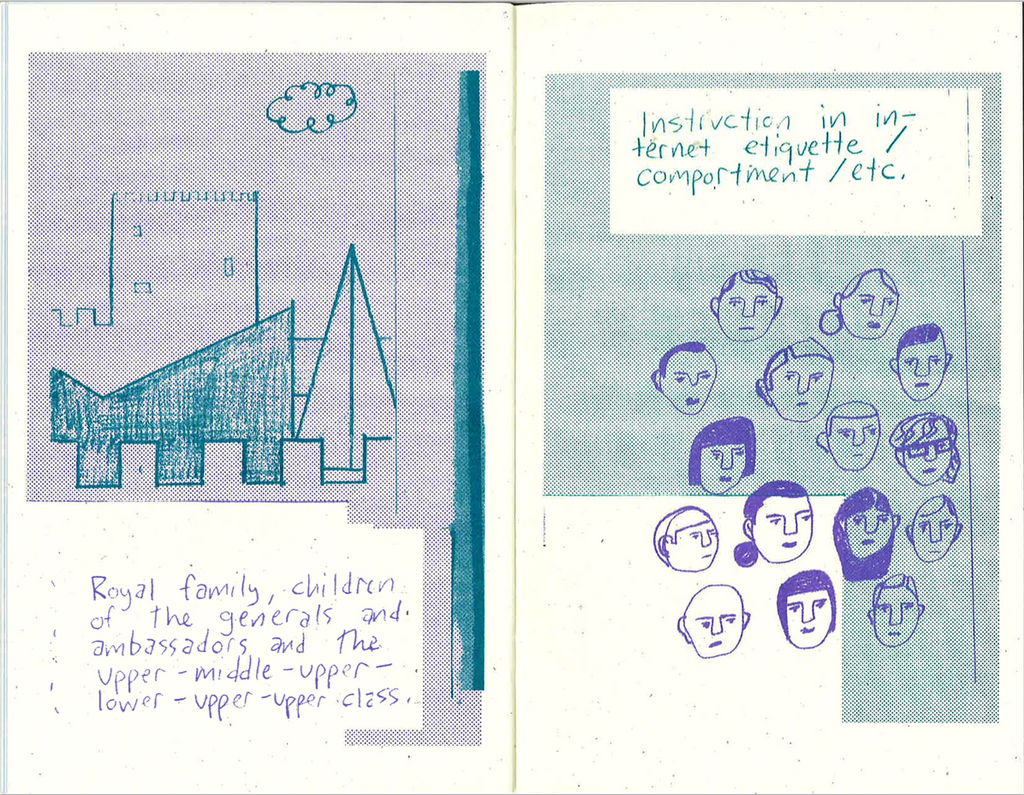 Royal family, children
of the generals and
ambassadors and the
upper-middle-upper-
lower-upper-upper class.
Instruction in in-
ternet etiquette /
comportment /etc.